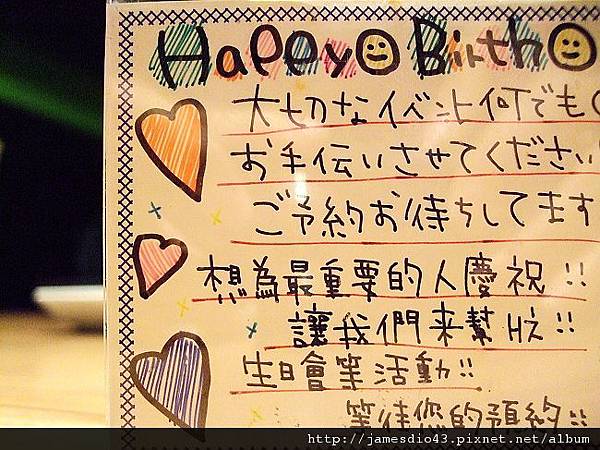 Happy Birth
大切なイベント何でも
お手伝いさせてください
ご予約お待ちしてます
想為最重要的人慶祝!!
讓我們来幫忙!!
生日會等活動!!
等待您的預約!!
http://jamesdio43.pixnet.net/album